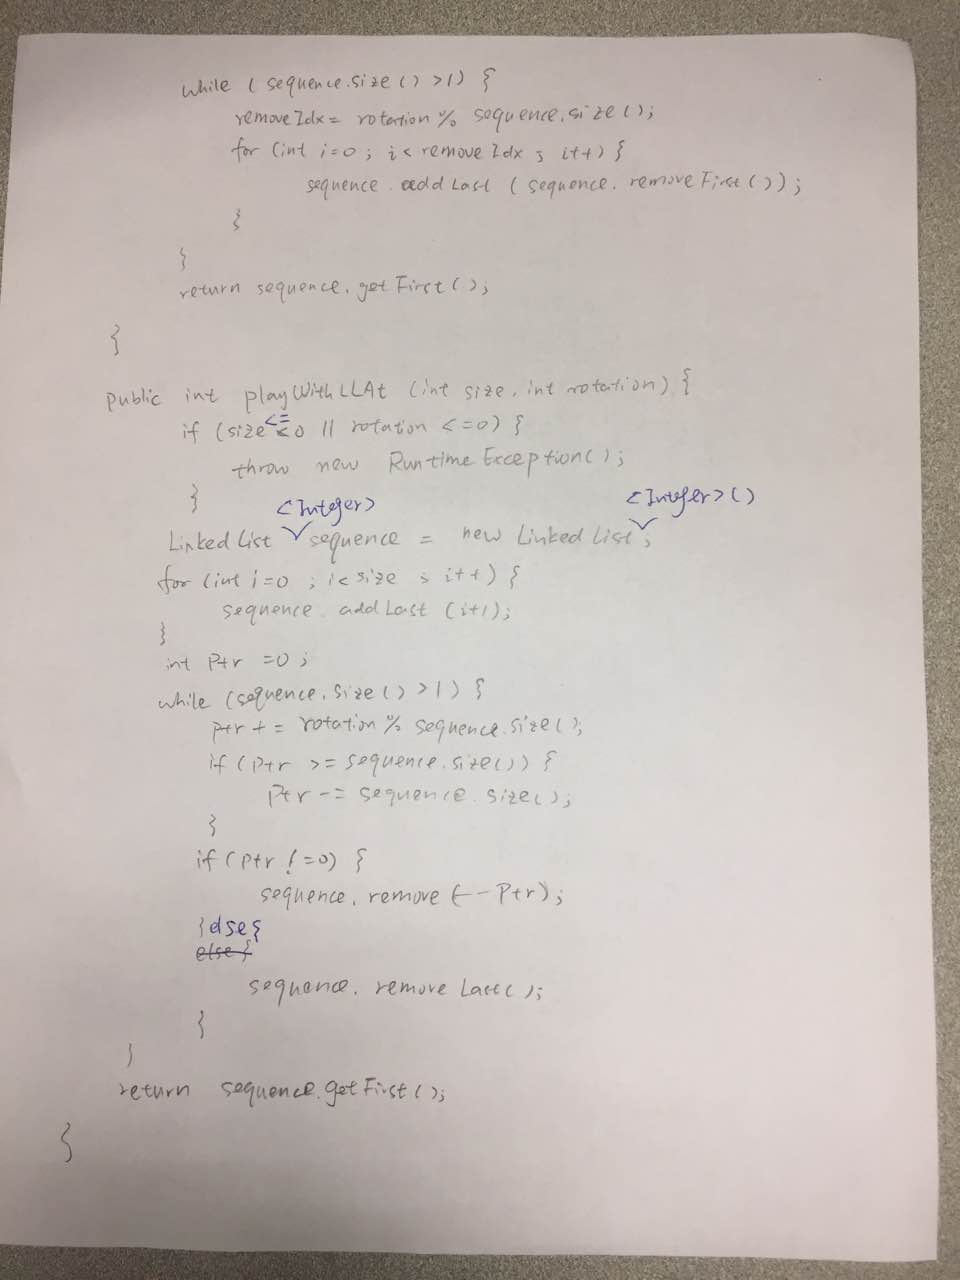 while ( sequence.size () >1) {
removeIdx = rotation % sequence.size ();
for (int i=0 ; i< removeIdx ; i++) {
sequence.addLast (sequence.removeFirst());
}
}
return sequence.getFirst();
}
public int playWithLLAt (int size, int rotation) {
<=
if (size <0 || rotation <=0) {
throw new RuntimeException();
}
<Integer> <Integer>()
LinkedList sequence = new LinkedList;
for (int i=0 ; i<size ; i++) {
sequence.addLast (i+1);
}
int ptr =0;
while (sequence.size() >1) {
ptr += rotation % sequence.size();
if (ptr >= sequence.size()) {
ptr -= sequence.size();
}
if (ptr !=0) {
sequence.remove (--ptr);
}else{
else {
sequence.removeLast();
}
}
return sequence.getFirst();
}